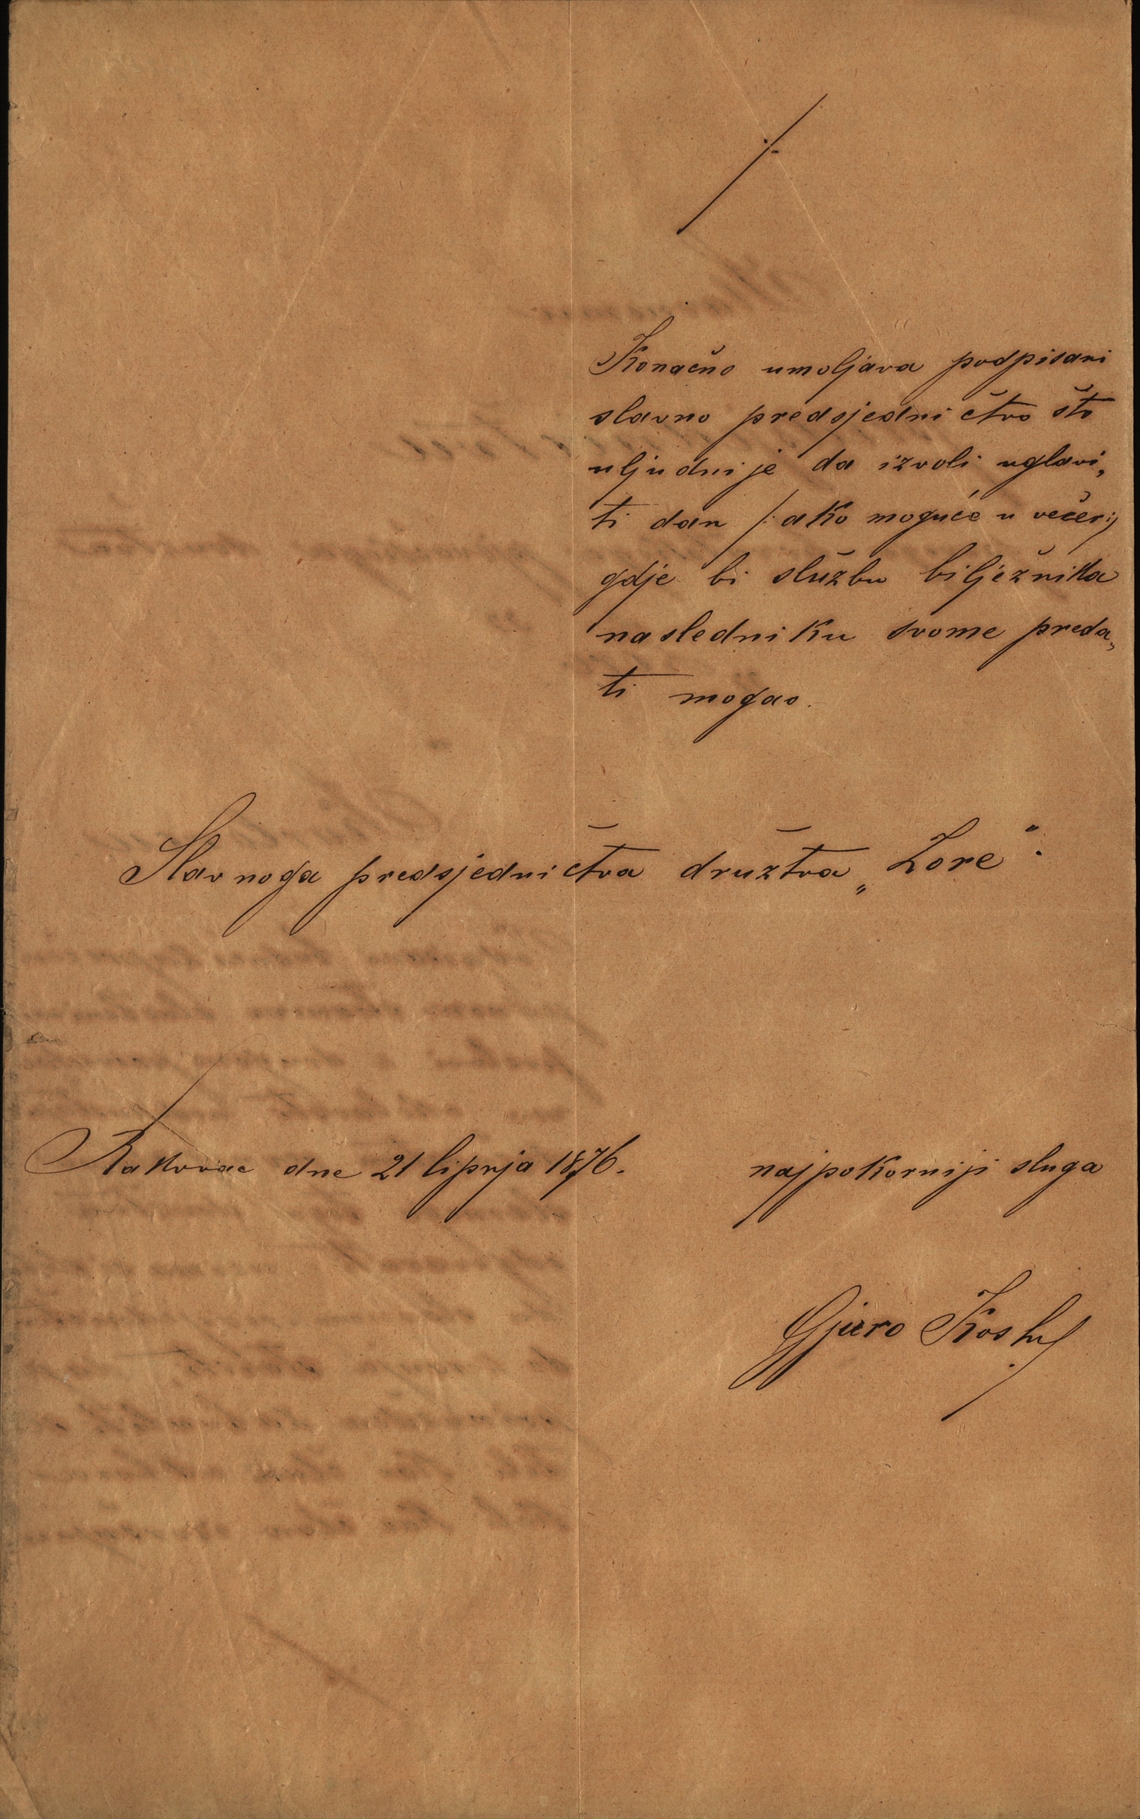 Konačno umoljava podpisani
slavno predsjedničtvo što
uljudnije da izvoli uglavi„
ti dan /: ako moguće u večer :/
gdje bi službu bilježnika
nasledniku svome preda„
ti mogao.
Slavnoga predsjedničtva družtva „Zore“.
Rakovac dne 21 lipnja 1876.
najpokorniji sluga
Gjuro